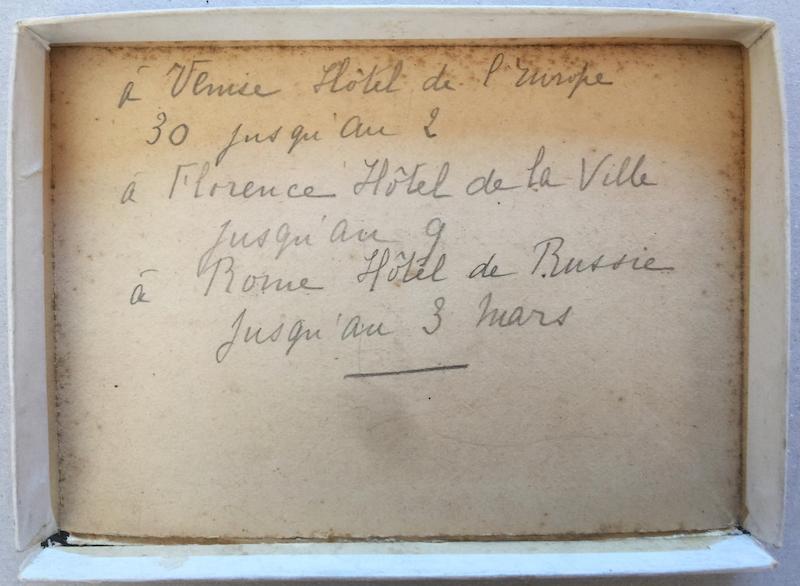 à Venise Hôtel de l'Europe
30 jusqu'au 2
à Florence Hôtel de la Ville
jusqu'au 9
à Rome Hôtel de Russie
jusqu'au 3 mars